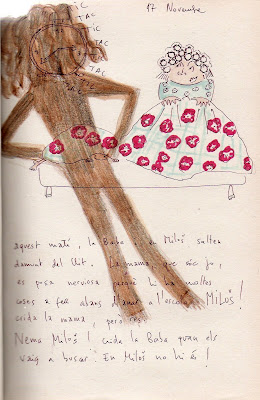 17 Novembre
TIC
TAC
TIC
TAC
TIC
TAC
aquest matí, la Baba i en Miloš salten
damunt del llit. La mama, que sóc jo,
es posa nerviosa perquè hi ha moltes
coses a fer abans d'anar a l'escola. MILOŠ!
crida la mama, però res.
Nema Miloš! crida la Baba quan els
vaig a buscar. En Miloš no hi és!